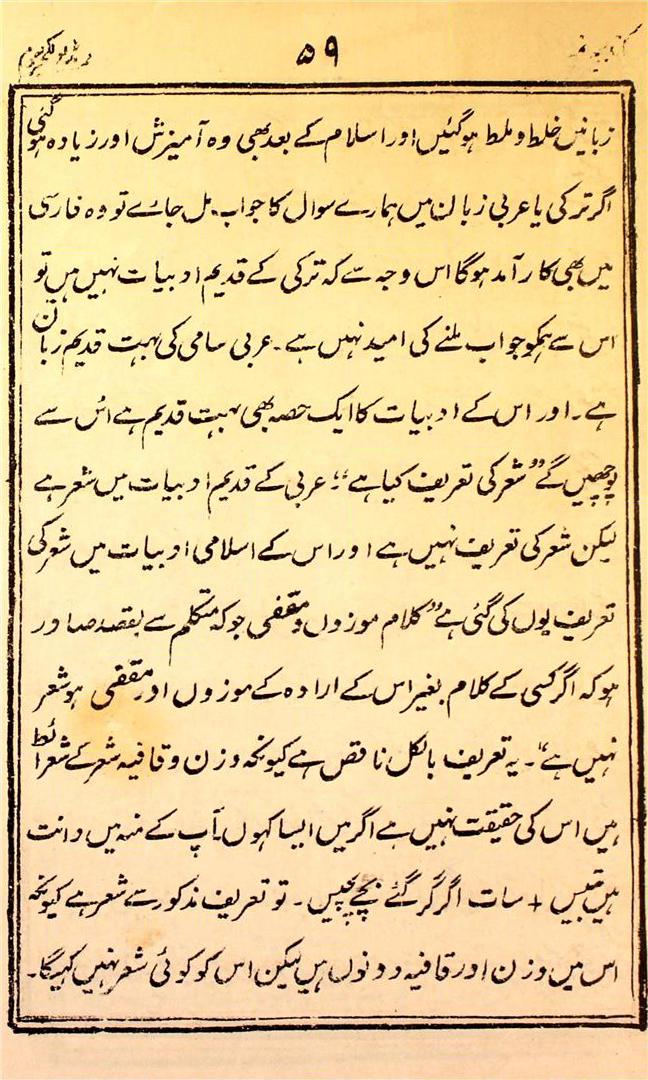 ۵۹
زبانیں خلط و ملط ہوگئیں اور اسلام کے بعد بھی وہ آمیزش اور زیادہ ہوگئی
اگر ترکی یا عربی زبان میں ہمارے سوال کا جواب مل جائے تو وہ فارسی
میں بھی کار آمد ہوگا اس وجہ سے کہ ترکی کے قدیم ادبیات نہیں ہیں تو
اس سے ہمکو جواب ملنے کی امید نہیں ہے۔ عربی سامی کی بہت قدیم زبان
ہے۔ اور اس کے ادبیات کا ایک حصہ بھی بہت قدیم ہے اُس سے
پوچھیں گے ”شعر کی تعریف کیا ہے“؟ عربی کے قدیم ادبیات میں شعر ہے
لیکن شعر کی تعریف نہیں ہے اور اس کے اسلامی ادبیات میں شعر کی
تعریف یوں کی گئی ہے ”کلام موزوں و مقفی جو کہ متکلم سے بقصد صادر
ہو کہ اگر کسی کے کلام بغیر اس کے ارادہ کے موزوں اور مقفی ہو شعر
نہیں ہے“۔ یہ تعریف بالکل ناقص ہے کیونکہ وزن و قافیہ شعر کے شرائط
ہیں اس کی حقیقت نہیں ہے اگر میں ایسا کہوں۔ آپ کے منہ میں دانت
ہیں بتیس + سات اگر گر گئے بچے پچیس۔ تو تعریف مذکور سے شعر ہے کیونکہ
اس میں وزن اور قافیہ دونوں ہیں لیکن اس کو کوئی شعر نہیں کہیگا۔